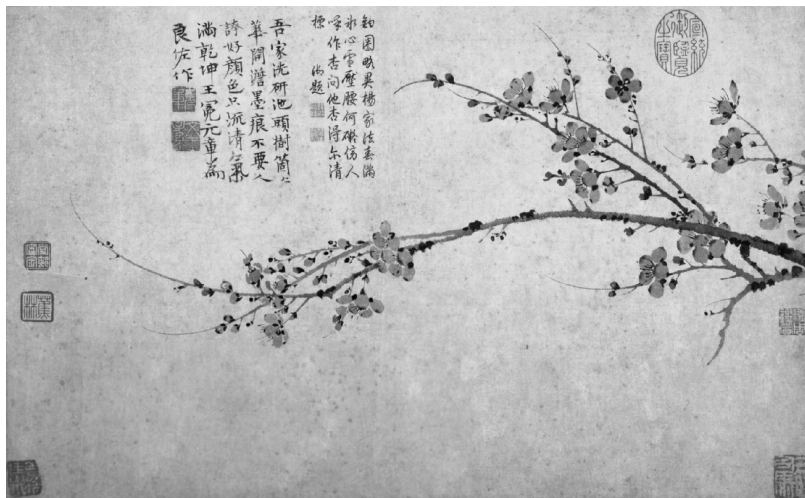 鈎圈略異楊家法春滿
冰心雪壓腰何礙傍人
呼作杏問他杏得尒清
標 御題
吾家洗研池頭樹箇〻
華開澹墨痕不要人
誇好顏色只流清氣
滿乾坤王冕元章為
良佐作
宣統御覽之寶